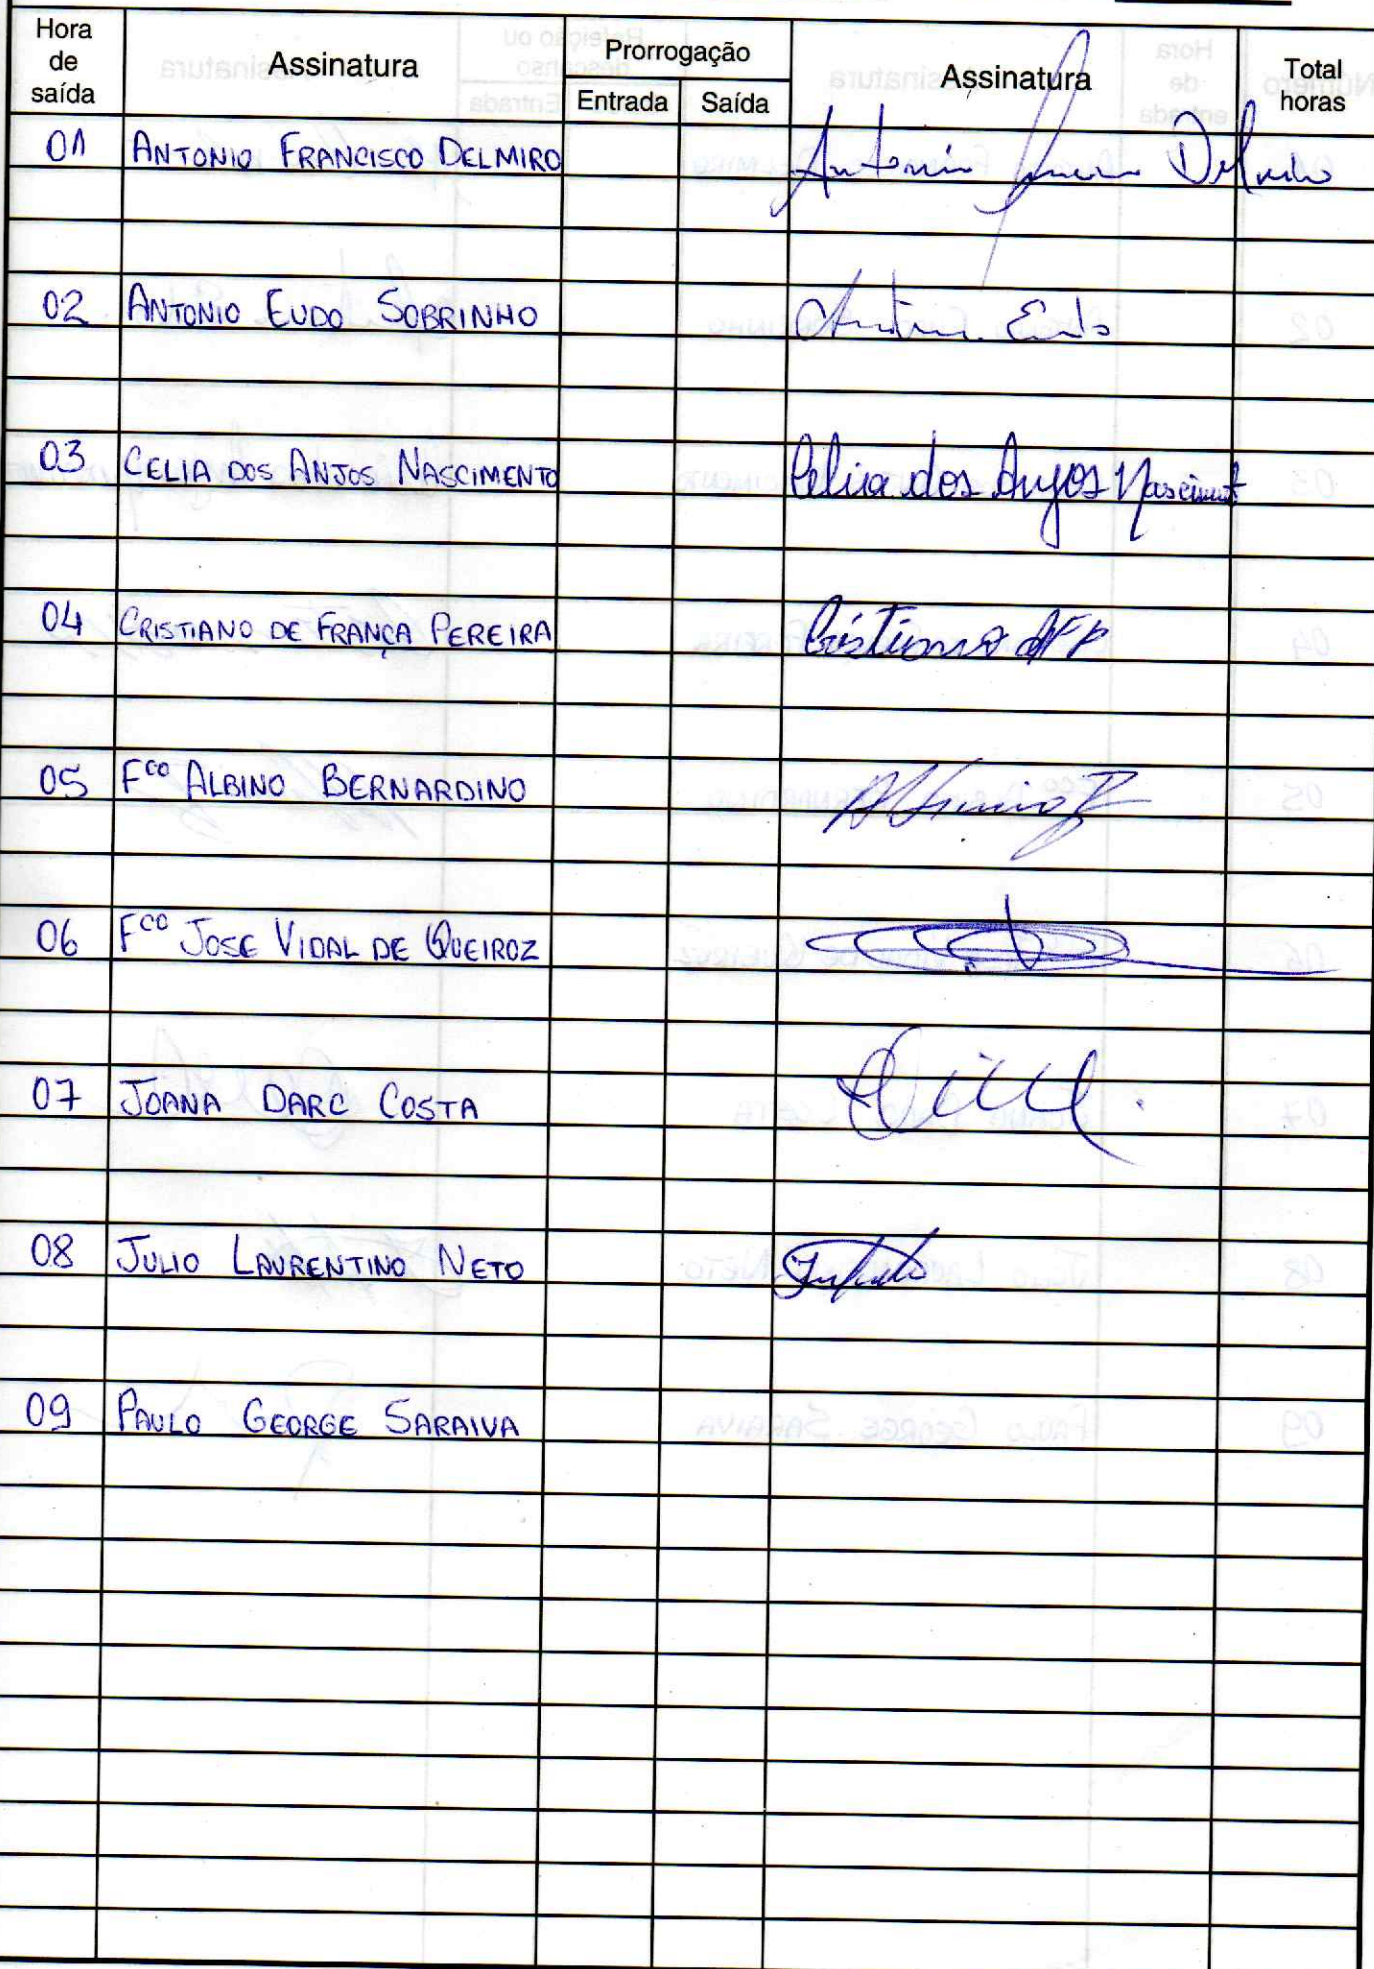 Hora de saída Assinatura Prorrogação Entrada Saída Assinatura Total horas
01 ANTONIO FRANCISCO DELMIRO Antonio Delmiro
02 ANTONIO EUDO SOBRINHO Antonio Eudo
03 CELIA DOS ANJOS NASCIMENTO Celia dos Anjos Nasciment
04 CRISTIANO DE FRANÇA PEREIRA Cristiano dFP
05 Fco ALBINO BERNARDINO
06 Fco JOSE VIDAL DE QUEIROZ
07 JOANA DARC COSTA
08 JULIO LAURENTINO NETO
09 PAULO GEORGE SARAIVA